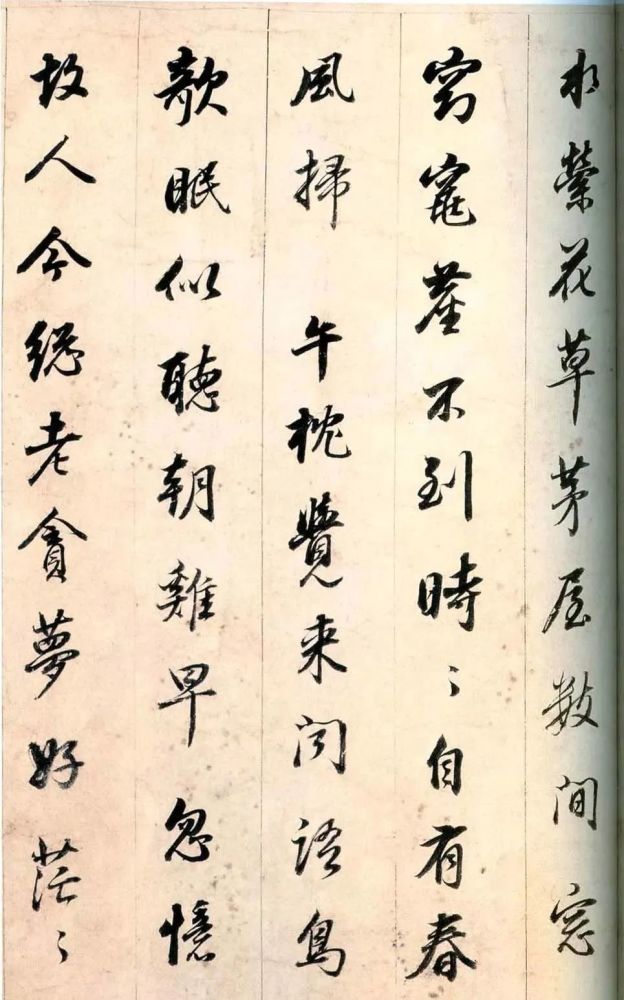 水縈花草茅屋數間窓
窈窕塵不到時〻自有春
風掃　午枕覺来聞語鳥
欹眠似聽朝雞早忽憶
故人今緫老貪夢好茫〻